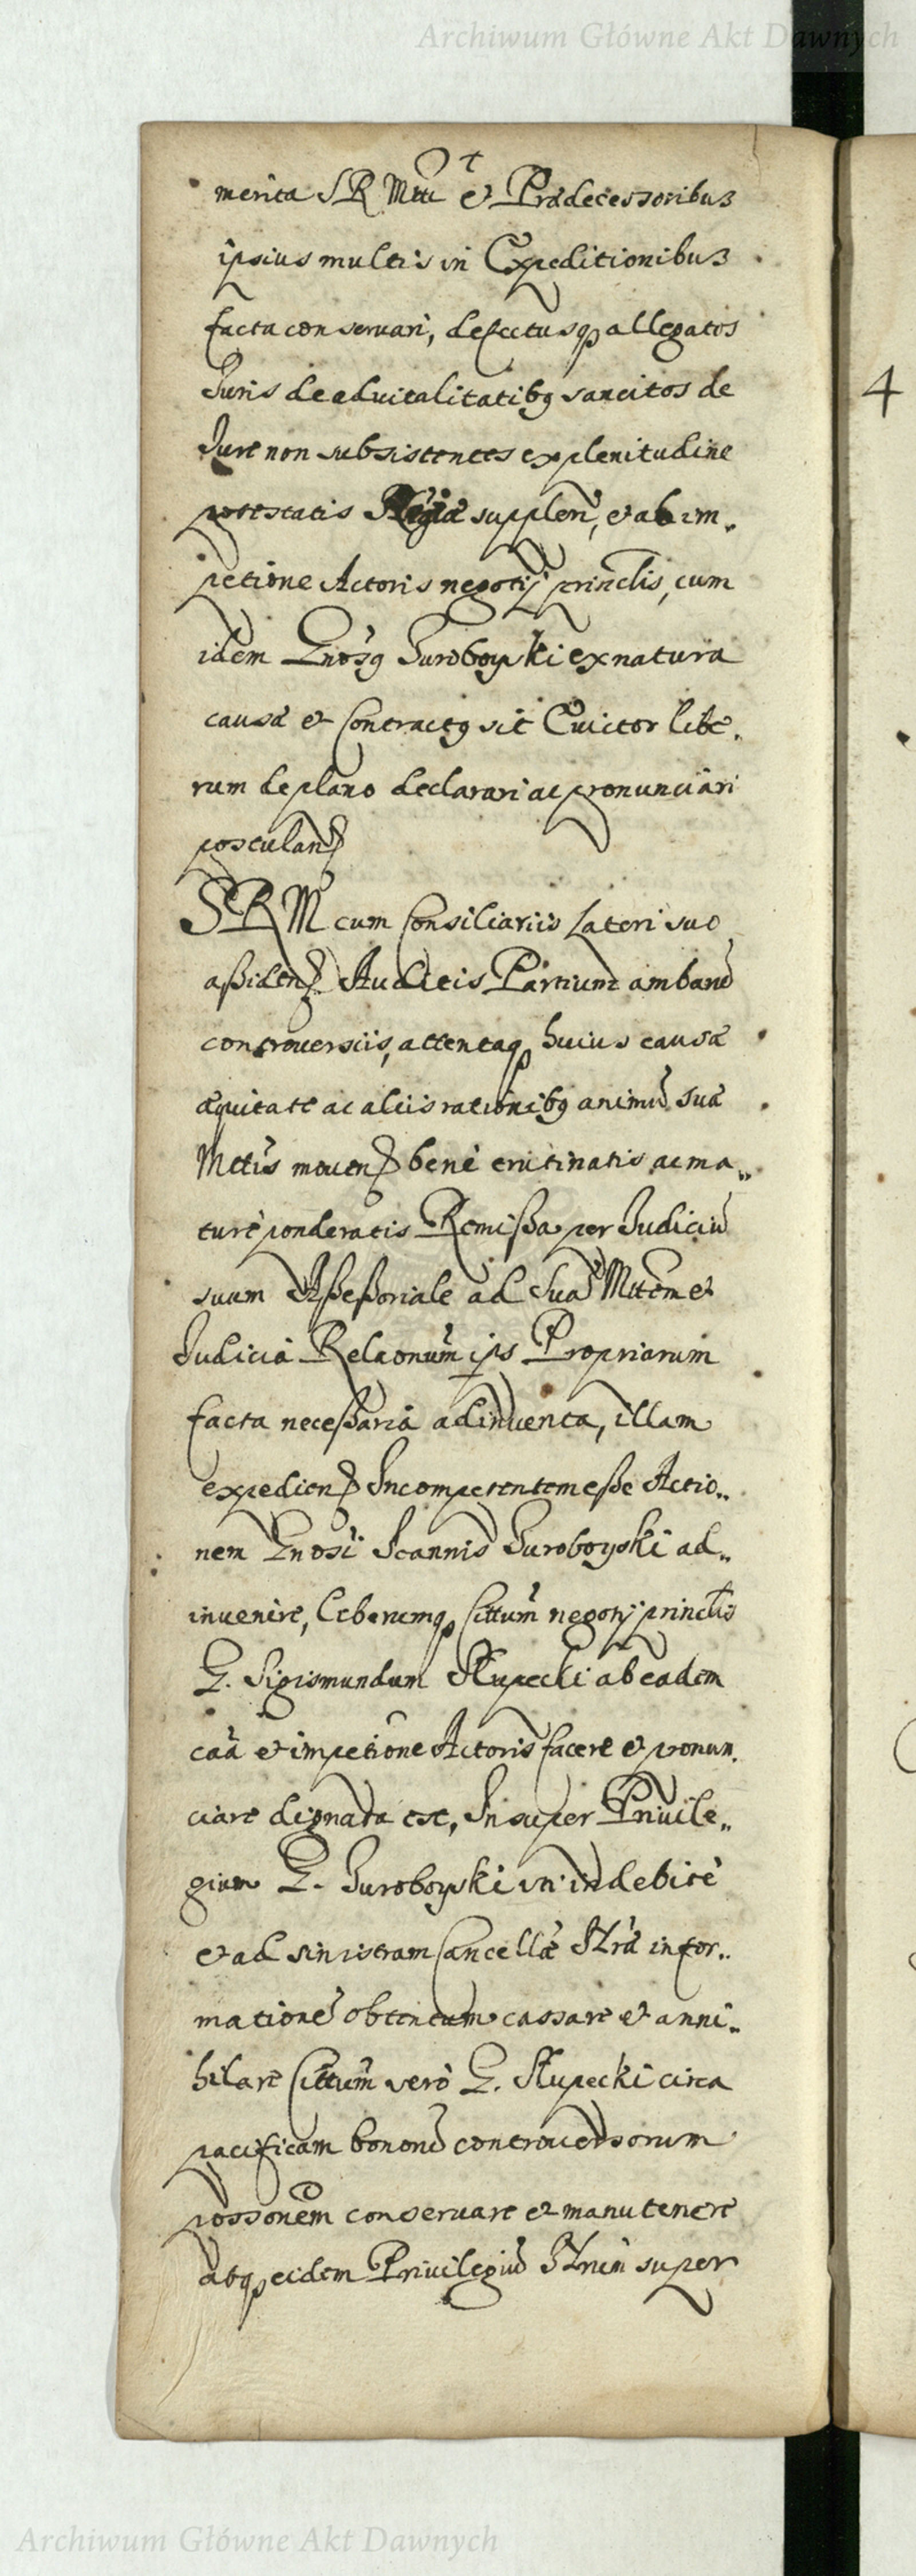 Archiwum Główne Akt Dawnych
merita S R Mtti et Prædecessoribus
ipsius multis in Expeditionibus
facta conservari, defectusq allegatos
Juris de advitalitatibq sancitos de
Jure non subsistentes ex plenitudine
potestatis Regiæ suppleri, et ab im.
petitione Actoris negotij princlis, cum
idem Gnosq Suroboyski ex natura
causæ et Contractq sit Evictor libe.
rum de plano declarari ac pronunciari
postulan
S R M cum Consiliariis Lateri suo
aßiden Auditis Partium amban
controversiis, attentaq huius causæ
æquitate ac aliis rationibq animũ suæ
Mttis moven bene crutinatis ac ma..
ture ponderatis Remißa per Judiciũ
suum Aßeßoriale ad Suã Mttem et
Judicia Relaonum ips Propriarum
facta neceßaria adinventa, illam
expedien Incompetentem eße Actio..
nem Gnosi Joannis Suroboyski ad..
invenire, Liberumq Cittum negotij princlis
G. Sigismundum Słupecki ab eadem
caã et impetitione Actoris facere et pronun.
ciare dignata est, Insuper Privile..
gium G. Suroboyski uti indebite
et ad sinistram Cancellæ Nræ infor..
mationẽ obtentum cassare et anni..
hilare Cittum vero G. Słupecki circa
pacificam bonorũ controversorum
possonem conservare et manutenere
atq eidem Privilegiũ Nrum super
4
Archiwum Główne Akt Dawnych